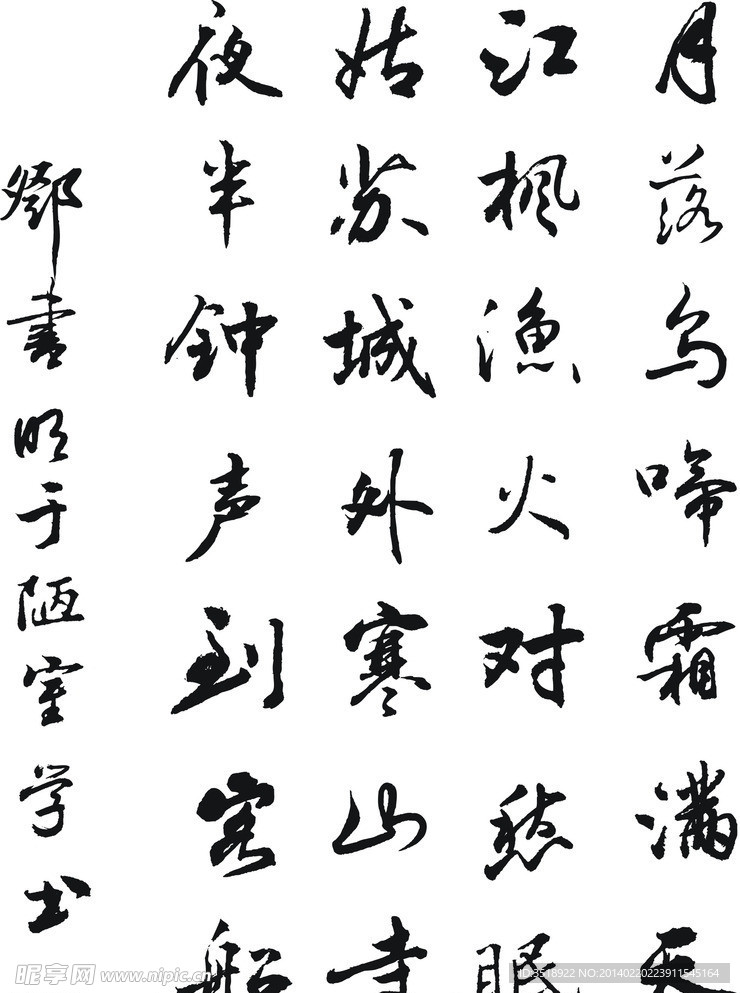 月落乌啼霜满天
江枫渔火对愁眠
姑苏城外寒山寺
夜半钟声到客船
鄧書明于陋室学书
昵享网 www.nipic.cn
ID:3518922 NO:20140220223911545164